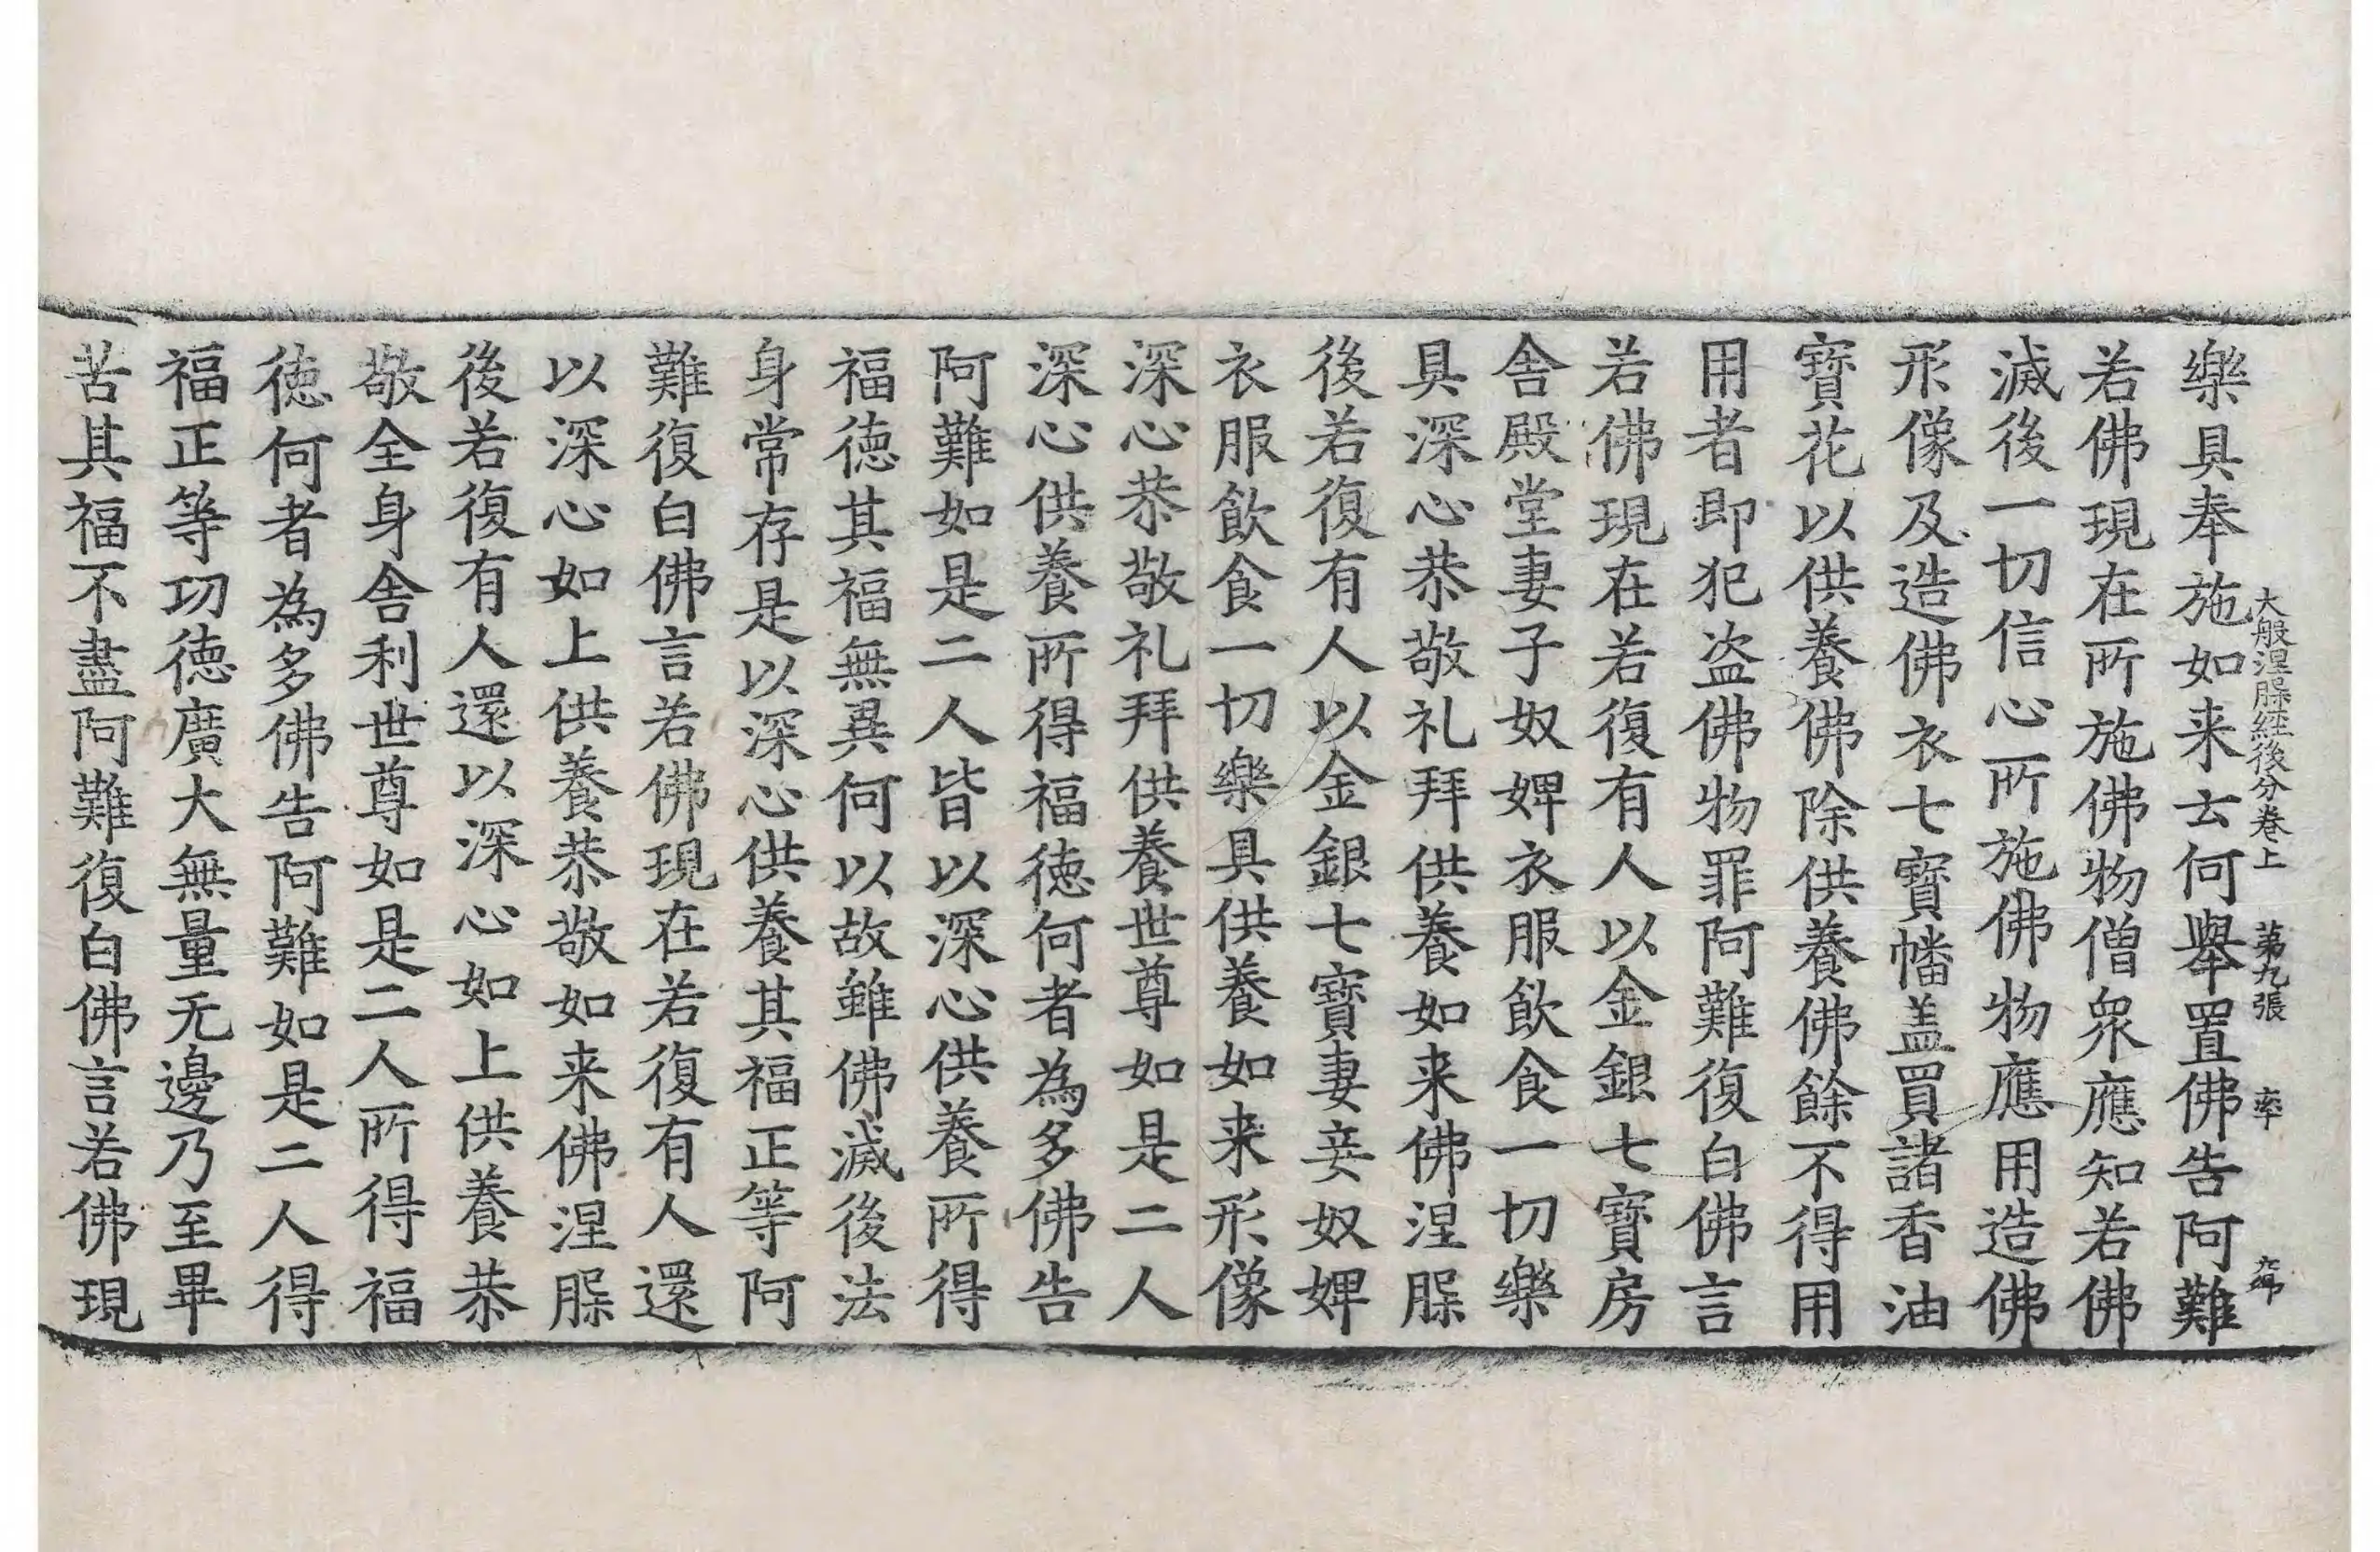 大般涅槃経後分卷上 第九張 率
樂具奉施如来云何舉置佛告阿難
若佛現在所施佛物僧衆應知若佛
滅後一切信心所施佛物應用造佛
形像及造佛衣七寶幡盖買諸香油
寶花以供養佛除供養佛餘不得用
用者即犯盗佛物罪阿難復白佛言
若佛現在若復有人以金銀七寶房
舎殿堂妻子奴婢衣服飲食一切樂
具深心恭敬礼拜供養如来佛涅槃
後若復有人以金銀七寶妻妾奴婢
衣服飲食一切樂具供養如来形像
深心恭敬礼拜供養世尊如是二人
深心供養所得福徳何者為多佛告
阿難如是二人皆以深心供養所得
福徳其福無異何以故雖佛滅後法
身常存是以深心供養其福正等阿
難復白佛言若佛現在若復有人還
以深心如上供養恭敬如来佛涅槃
後若復有人還以深心如上供養恭
敬全身舎利世尊如是二人所得福
徳何者為多佛告阿難如是二人得
福正等功徳廣大無量无邊乃至畢
苦其福不盡阿難復白佛言若佛現